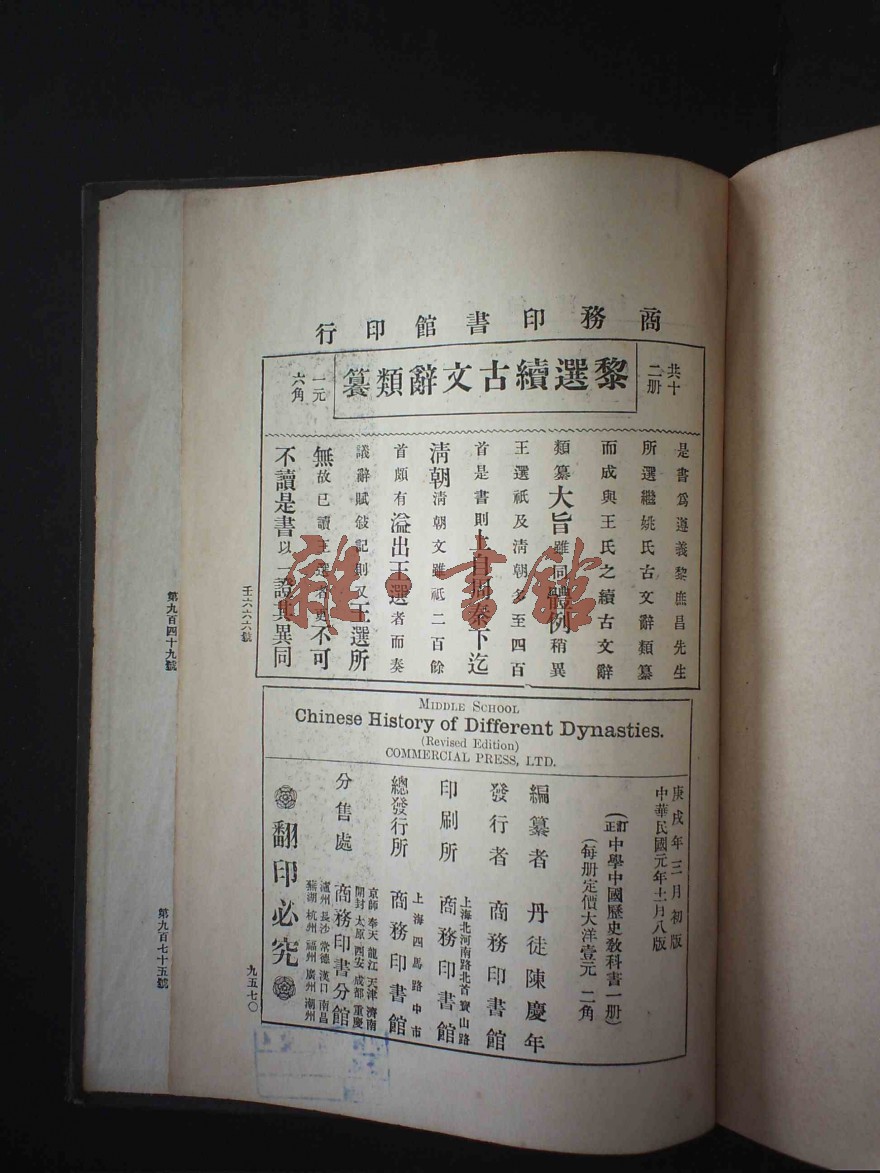 商務印書館印行
共十二册
黎選續古文辭類籑
一元六角
是書爲遵義黎庶昌先生
所選繼姚氏古文辭類纂
而成與王氏之續古文辭
類纂大旨雖同體例稍異
王選祇及清朝多至四百
首是書則上自周秦下迄
清朝清朝文雖祇二百餘
首頗有溢出王選者而奏
議辭賦敍記則又王選所
無故已讀王選者更不可
不讀是書以一證其異同
MIDDLE SCHOOL
Chinese History of Different Dynasties.
(Revised Edition)
COMMERCIAL PRESS, LTD.
庚戌年三月初版
中華民國元年十二月八版
(訂正中學中國歷史教科書一册)
(每册定價大洋壹元二角)
編纂者 丹徒陳慶年
發行者 商務印書館
印刷所 上海北河南路北首寶山路 商務印書館
總發行所 上海四馬路中市 商務印書館
分售處 京師 奉天 龍江 天津 濟南 開封 太原 西安 成都 重慶 商務印書分館 瀘州 長沙 常德 漢口 南昌 蕪湖 杭州 福州 廣州 潮州
翻印必究
壬六六六號
九五七〇
第九百四十九號
第九百七十五號
雜·書館